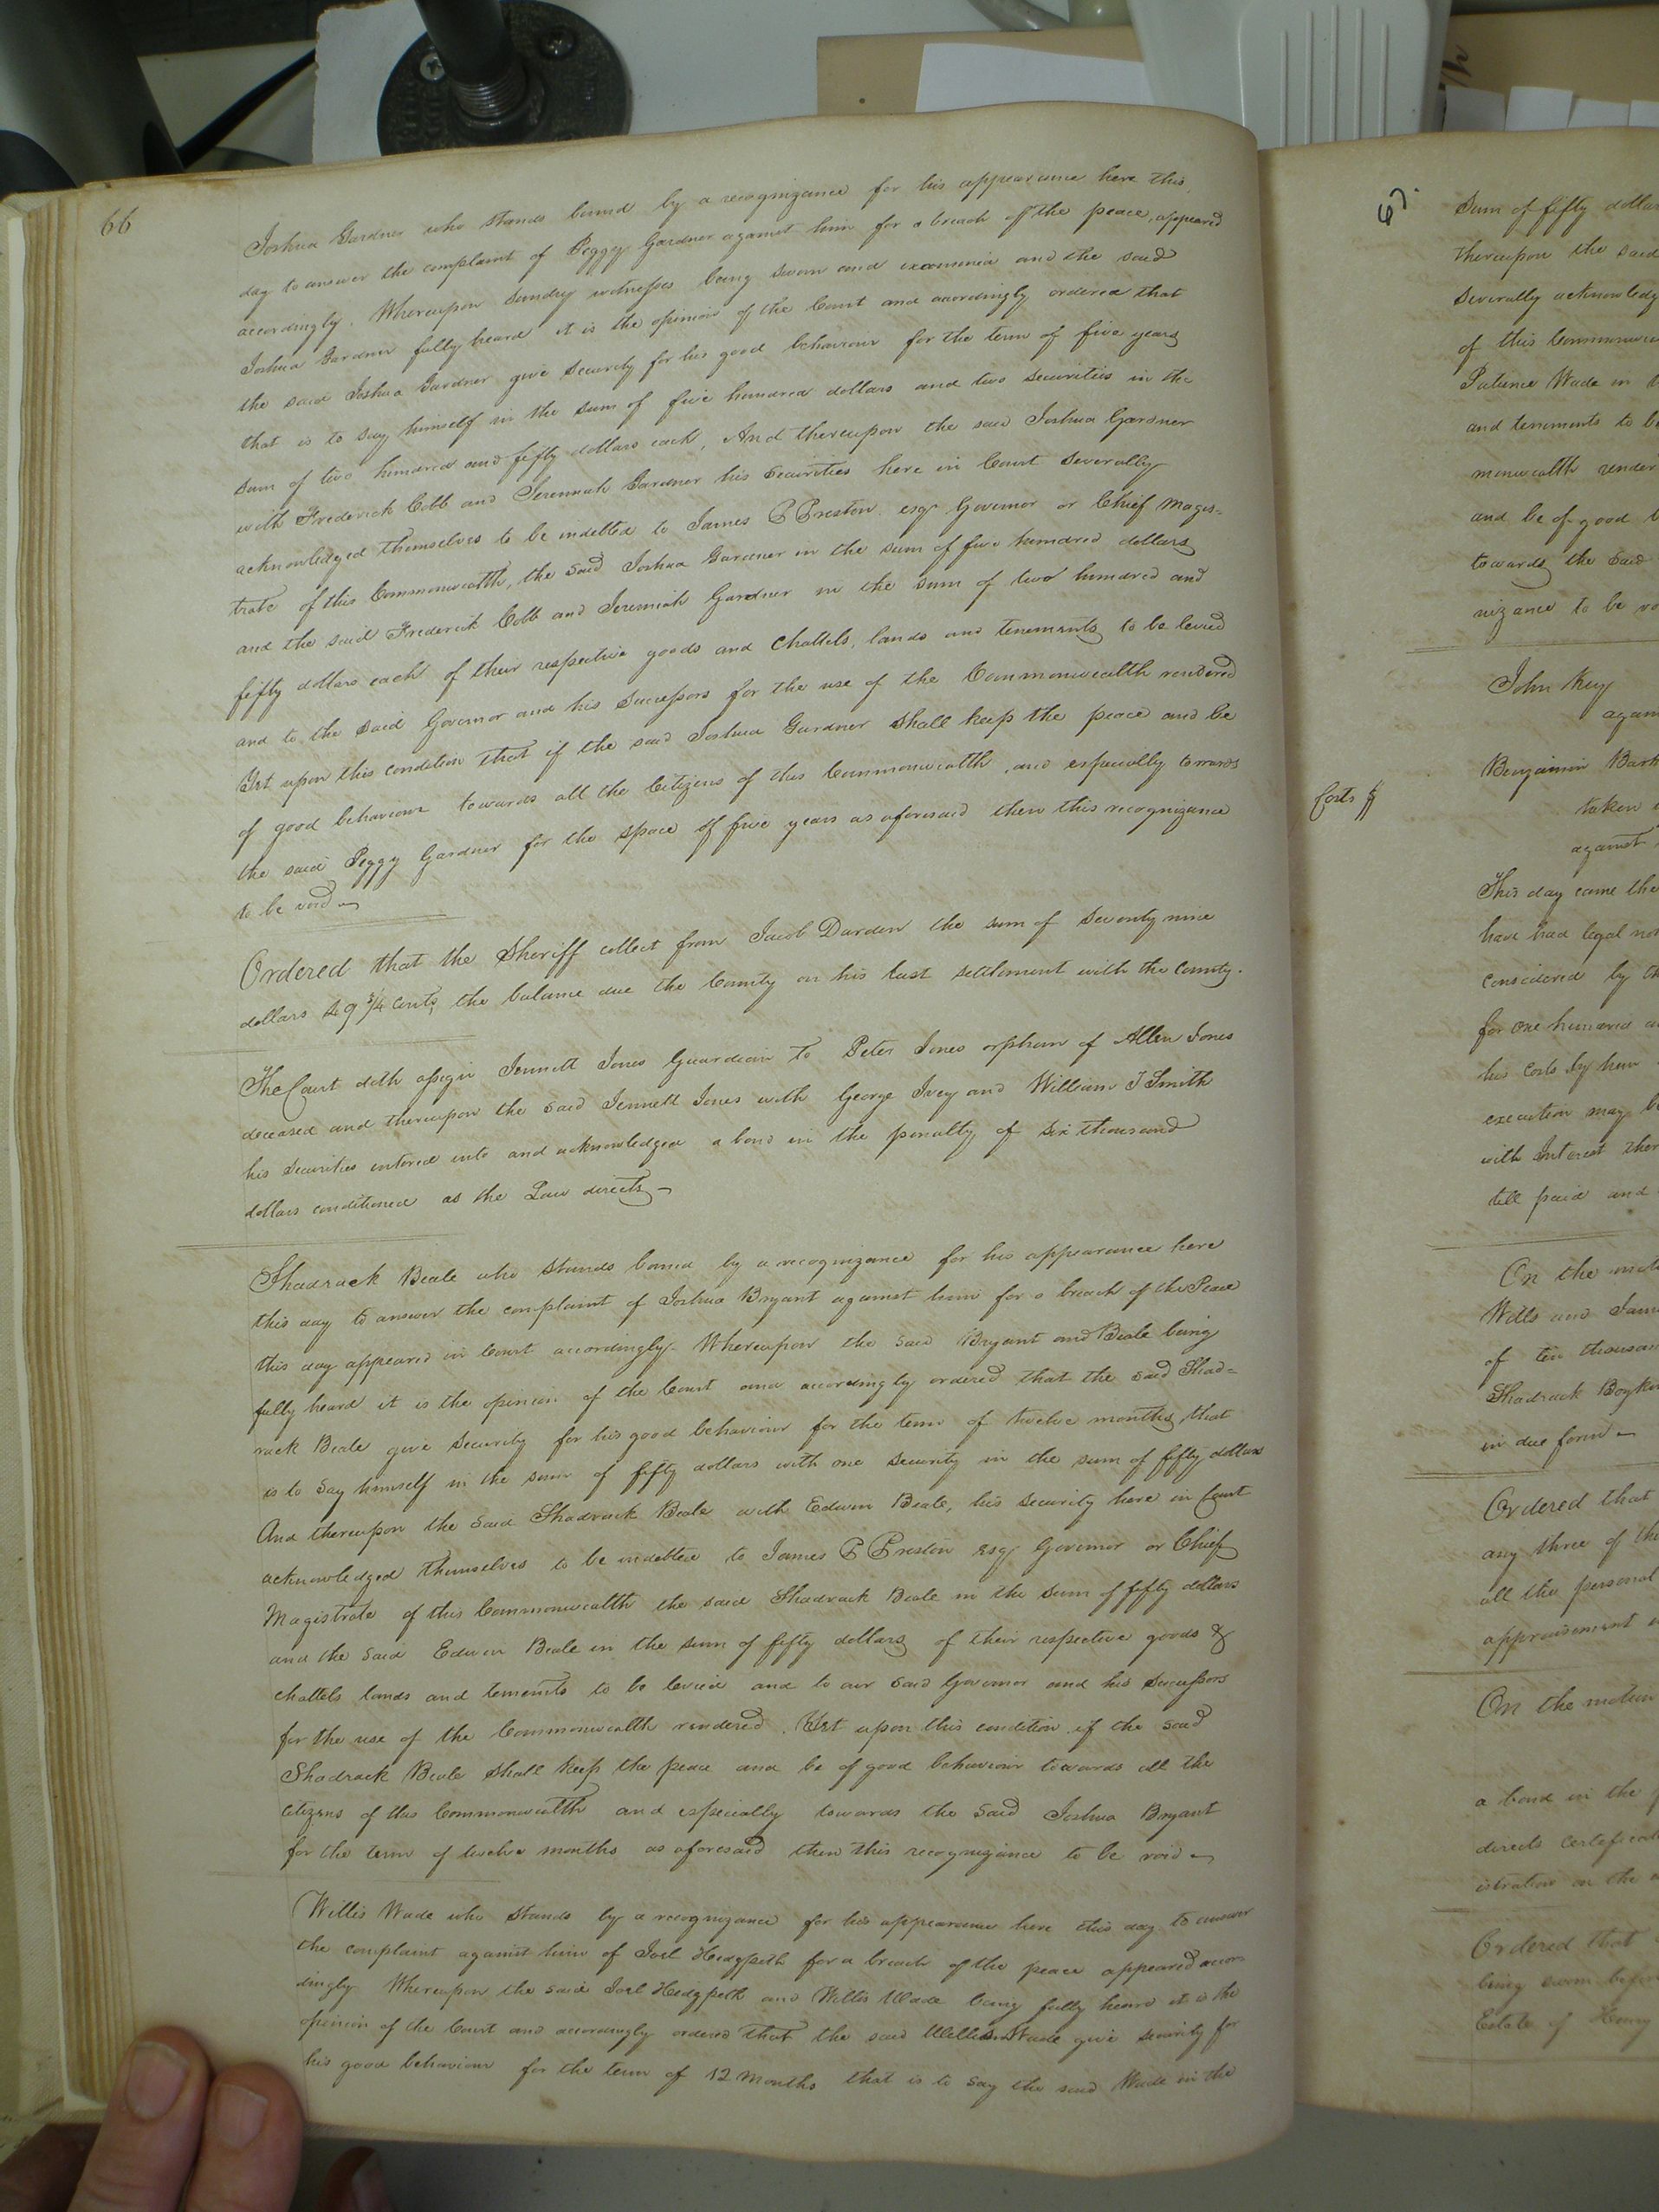 66
Joshua Gardner who stands bound by a recognizance for his appearance here this
day to answer the complaint of Peggy Gardner against him for a breach of the peace, appeared
accordingly. Whereupon sundry witnesses being sworn and examined and the said
Joshua Gardner fully heard it is the opinion of the Court and accordingly ordered that
the said Joshua Gardner give security for his good behaviour for the term of five years
that is to say himself in the sum of five hundred dollars and two securities in the
sum of two hundred and fifty dollars each, And thereupon the said Joshua Gardner
with Frederick Cobb and Jeremiah Gardner his securities here in Court severally
acknowledged themselves to be indebted to James P Preston esqr Governor or Chief Magis-
trate of this Commonwealth, the said Joshua Gardner in the sum of five hundred dollars
and the said Frederick Cobb and Jeremiah Gardner in the sum of two hundred and
fifty dollars each of their respective goods and Chattels, lands and tenements to be levied
and to the said Governor and his Successors for the use of the Commonwealth rendered
Yet upon this condition that if the said Joshua Gardner shall keep the peace and be
of good behaviour towards all the Citizens of this Commonwealth, and especially towards
the said Peggy Gardner for the space of five years as aforesaid then this recognizance
to be void
Ordered that the Sheriff collect from Jacob Darden the sum of seventy nine
dollars 49 3/4 Cents, the balance due the County on his last settlement with the County.
The Court doth assign Jennett Jones Guardian to Peter Jones orphan of Allen Jones
deceased and thereupon the said Jennett Jones with George Ivey and William J Smith
his securities entered into and acknowledged a bond in the penalty of six thousand
dollars conditioned as the Law directs
Shadrack Beale who stands bound by a recognizance for his appearance here
this day to answer the complaint of Joshua Bryant against him for a breach of the Peace
this day appeared in Court accordingly. Whereupon the said Bryant and Beale being
fully heard it is the opinion of the Court and accordingly ordered that the said Shad=
rack Beale give security for his good behaviour for the term of twelve months, that
is to say himself in the sum of fifty dollars with one security in the sum of fifty dollars
And thereupon the said Shadrack Beale with Edwin Beale, his security here in Court
acknowledged themselves to be indebted to James P Preston esqr Governor or Chief
Magistrate of this Commonwealth the said Shadrack Beale in the sum of fifty dollars
and the said Edwin Beale in the sum of fifty dollars of their respective goods &
chattels lands and tenements to be levied and to our said Governor and his Successors
for the use of the Commonwealth rendered. Yet upon this condition if the said
Shadrack Beale shall keep the peace and be of good behaviour towards all the
Citizens of this Commonwealth and especially towards the said Joshua Bryant
for the term of twelve months as aforesaid then this recognizance to be void
Willis Wade who stands by a recognizance for his appearance here this day to answer
the complaint against him of Joel Hedgpeth for a breach of the peace appeared accor
dingly Whereupon the said Joel Hedgpeth and Willis Wade being fully heard it is the
opinion of the Court and accordingly ordered that the said Willis Wade give security for
his good behaviour for the term of 12 months that is to say the said Wade in the
67.
Sum of fifty dollar
thereupon the said
severally acknowledg
of this Commonwea
Patience Wade in
and tenements to b
monwealth render
and be of good b
towards the said
nizance to be vo
John Key
again
Benjamin Bark
Costs $
taken
against
This day came the
have had legal not
considered by th
for one hundred a
his Costs by him
execution may be
with Interest ther
till paid and
On the mot
Wills and Jam
of ten thousan
Shadrack Boyki
in due form
Ordered that
any three of the
all the personal
appraisement
On the motion
a bond in the
directs certificat
istration on the
Ordered that
being sworn befor
Estate of Henry